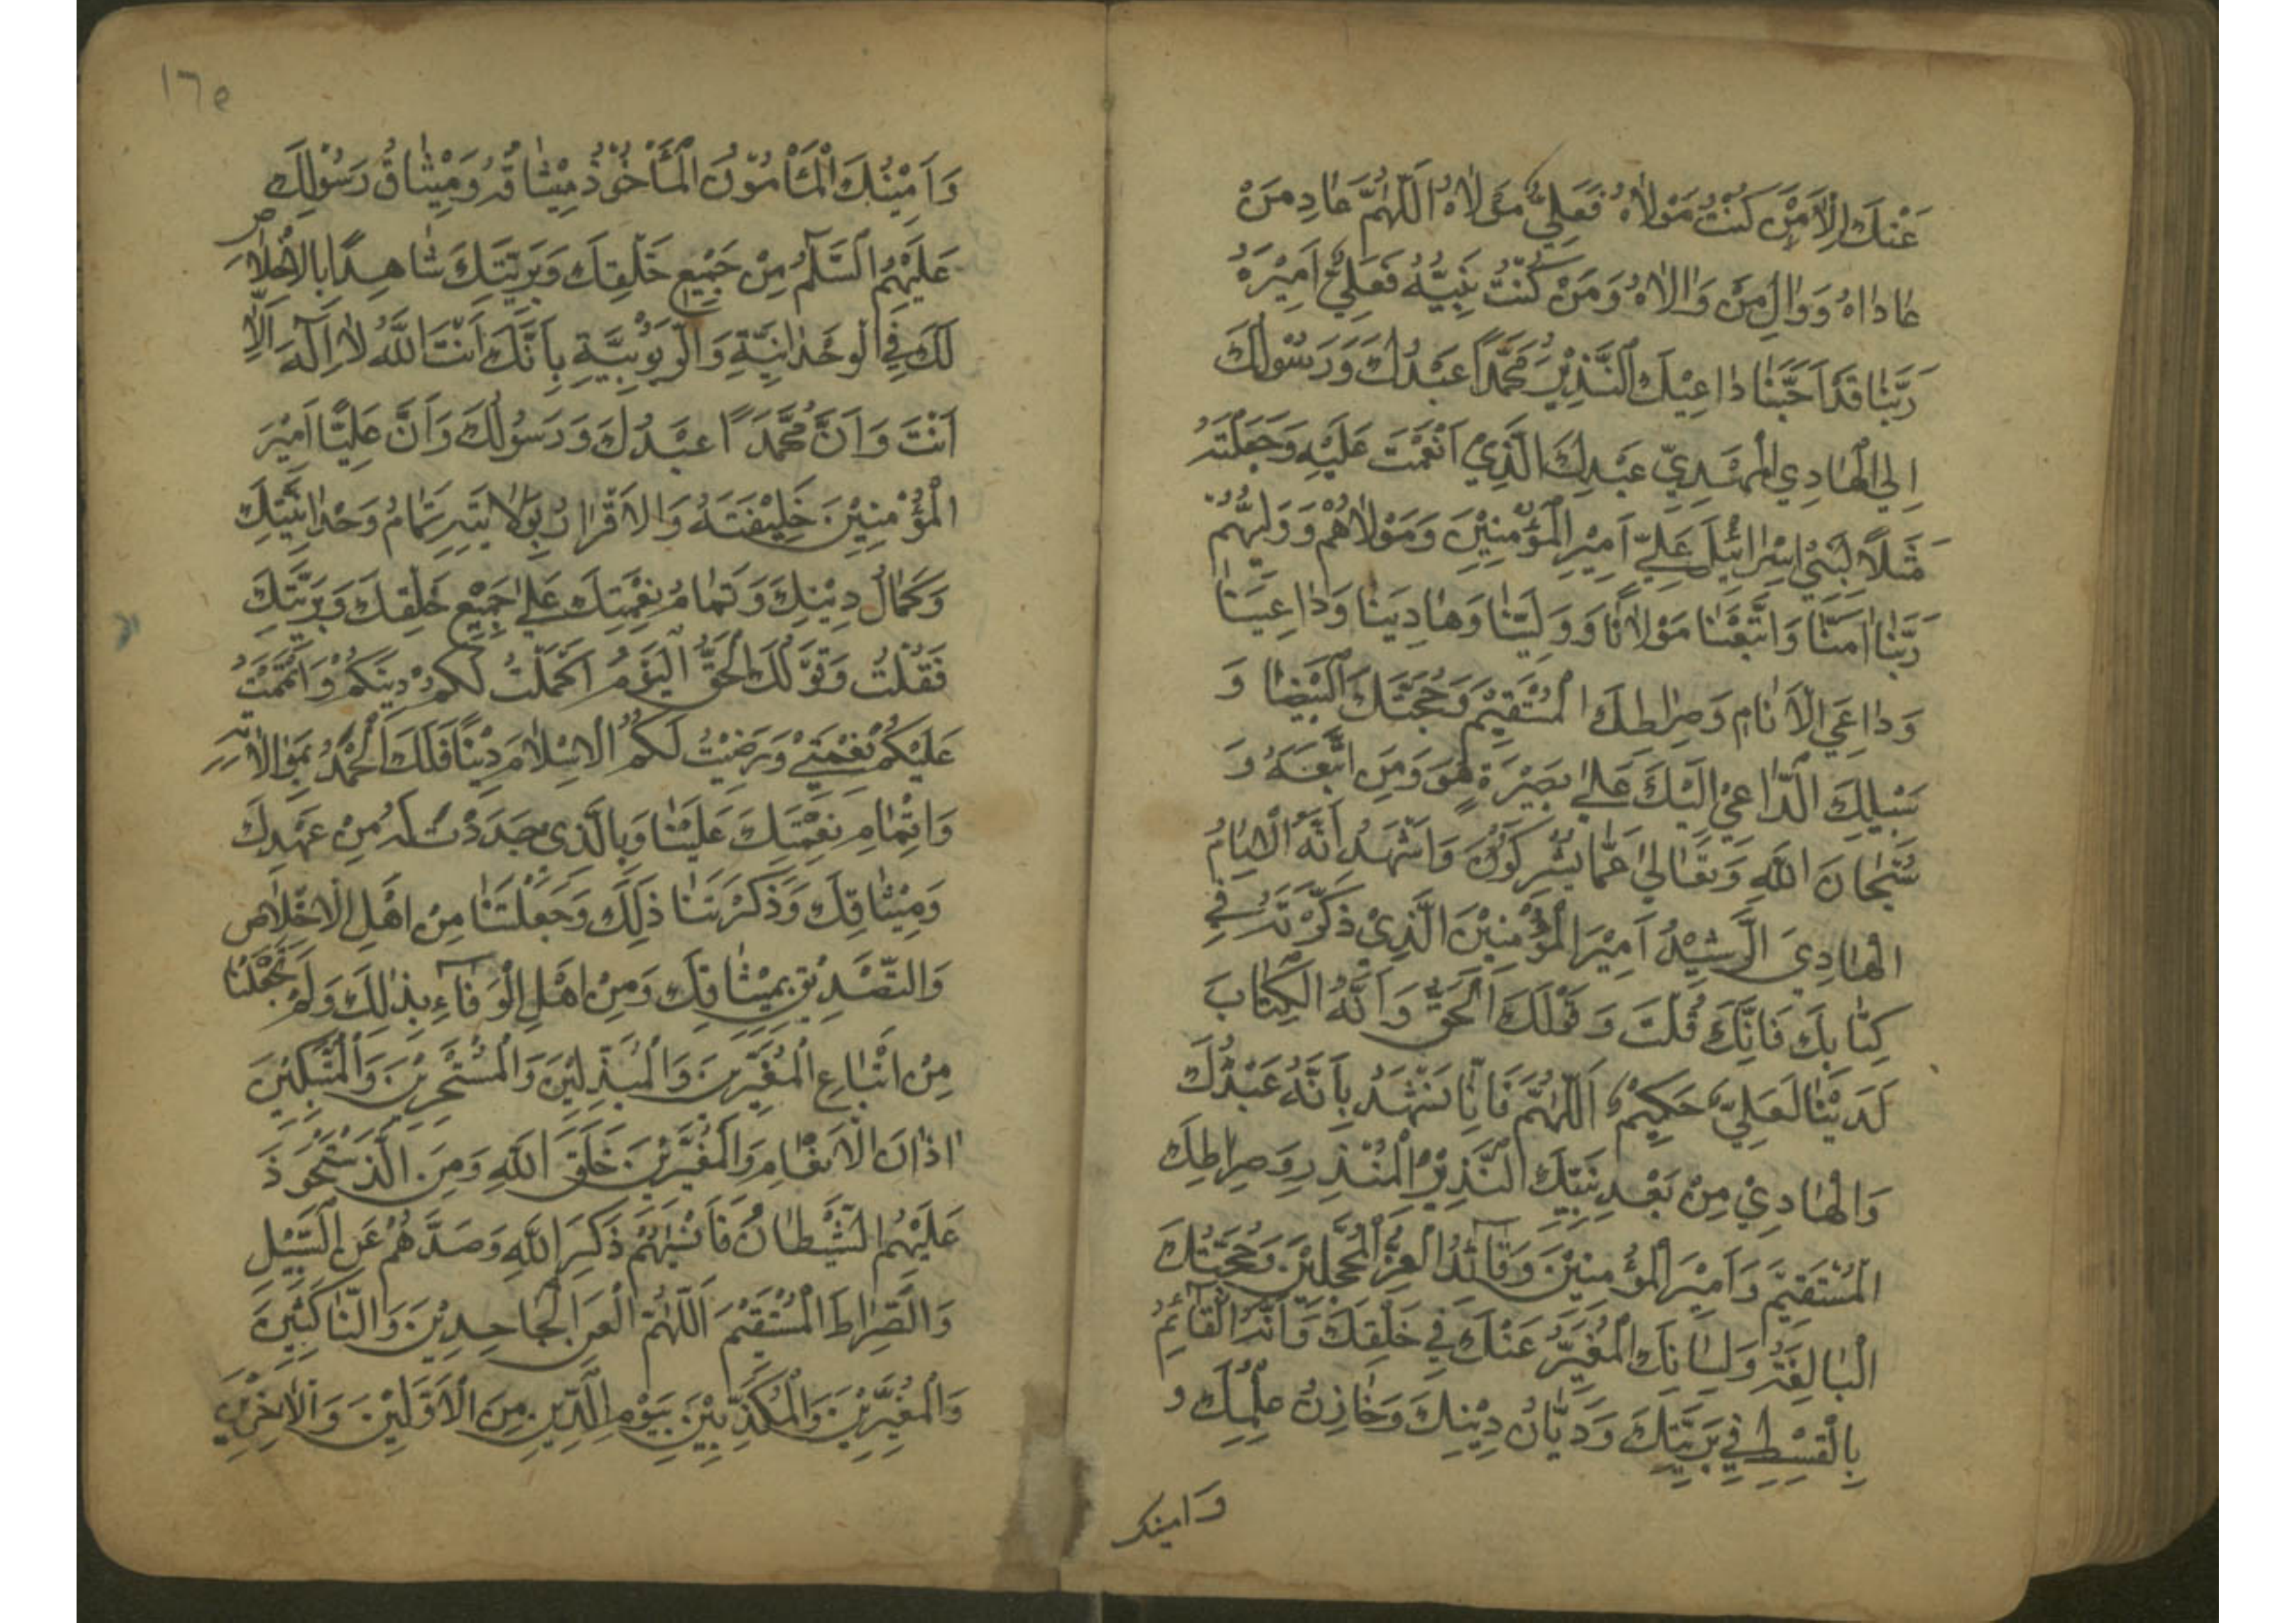 عَنْكَ اِلَّا مَنْ كُنْتُ مَوْلَاهُ فَعَلِيٌّ مَوْلَاهُ اَللّٰهُمَّ عَادِ مَنْ
عَادَاهُ وَوَالِ مَنْ وَالَاهُ وَمَنْ كُنْتُ نَبِيُّهُ فَعَلِيٌّ اَمِيْرُهُ
رَبَّنَا قَدْ اَجَبْنَا دَاعِيْكَ النَّذِيْرَ مُحَمَّدًا عَبْدُكَ وَرَسُوْلُكَ
اِلَى الْهَادِي الْمَهْدِيِّ عَبْدِكَ الَّذِيْ اَنْعَمْتَ عَلَيْهِ وَجَعَلْتَهُ
مَثَلًا لِبَنِيْ اِسْرَائِيْلَ عَلِيٍّ اَمِيْرِ الْمُؤْمِنِيْنَ وَمَوْلَاهُمْ وَوَلِيُّهُمْ
رَبَّنَا اٰمَنَّا وَاتَّبَعْنَا مَوْلَانَا وَوَلِيَّنَا وَهَادِيَنَا وَدَاعِيَنَا
وَدَاعِيَ الْاَنَامِ وَصِرَاطَكَ الْمُسْتَقِيْمَ وَحُجَّتَكَ الْبَيْضَا وَ
سَبِيْلِكَ الدَّاعِيْ اِلَيْكَ عَلٰى بَصِيْرَةٍ هُوَ وَمَنِ اتَّبَعَهُ وَ
سُبْحَانَ اللهِ وَتَعَالٰى عَمَّا يُشْرِكُوْنَ وَاَشْهَدُ اَنَّهُ الْاِمَامُ
الْهَادِيَ الرَّشِيْدُ اَمِيْرَ الْمُؤْمِنِيْنَ الَّذِيْ ذَكَرْتَهُ فِي
كِتَابِكَ فَاِنَّكَ قُلْتَ وَقَوْلُكَ الْحَقُّ وَاَنَّهُ الْكِتَابَ
لَدَيْنَا لَعَلِيٌّ حَكِيْمٌ اَللّٰهُمَّ فَاِنَّا نَشْهَدُ بِاَنَّهُ عَبْدُكَ
وَالْهَادِيْ مِنْ بَعْدِ نَبِيِّكَ النَّذِيْرِ الْمُنْذِرِ وَصِرَاطِكَ
الْمُسْتَقِيْمَ وَاَمِيْرَ الْمُؤْمِنِيْنَ وَقَائِدُ الْغُرِّ الْمُحَجَّلِيْنَ وَحُجَّتُكَ
الْبَالِغَةُ وَلِسَانَكَ الْمُعَبِّرُ عَنْكَ فِي خَلْقِكَ وَاَنَّهُ الْقَائِمُ
بِالْقِسْطِ فِي بَرِيَّتِكَ وَدَيَّانُ دِيْنِكَ وَخَازِنُ عِلْمِكَ وَ
وَامينك
١٦٥
وَاَمِيْنُكَ الْمَأْمُوْنُ الْمَأْخُوْذُ مِيْثَاقُهُ وَمِيْثَاقُ رَسُوْلِكَ
عَلَيْهِمُ السَّلٰمُ مِنْ جَمِيْعِ خَلْقِكَ وَبَرِيَّتِكَ شَاهِدًا بِالْاِخْلَاصِ
لَكَ فِي الْوَحْدَانِيَّةِ وَالرُّبُوْبِيَّةِ بِاَنَّكَ اَنْتَ اللهُ لَا اِلٰهَ اِلَّا
اَنْتَ وَاَنَّ مُحَمَّدًا عَبْدُكَ وَرَسُوْلُكَ وَاَنَّ عَلِيًّا اَمِيْرَ
الْمُؤْمِنِيْنَ خَلِيْفَتَهُ وَالْاِقْرَارُ بِوَلَايَتِهِ تَمَامُ وَحْدَانِيَّتِكَ
وَكَمَالُ دِيْنِكَ وَتَمَامُ نِعْمَتِكَ عَلٰى جَمِيْعِ خَلْقِكَ وَبَرِيَّتِكَ
فَقُلْتَ وَقَوْلُكَ الْحَقُّ الْيَوْمَ اَكْمَلْتُ لَكُمْ دِيْنَكُمْ وَاَتْمَمْتُ
عَلَيْكُمْ نِعْمَتِيْ وَرَضِيْتُ لَكُمُ الْاِسْلَامَ دِيْنًا فَلَكَ الْحَمْدُ بِمُوَالَاتِهِ
وَاِتْمَامِ نِعْمَتِكَ عَلَيْنَا وَبِالَّذِي جَدَدْتَ لَهُ مِنْ عَهْدِكَ
وَمِيْثَاقِكَ وَذَكَرْتَنَا ذٰلِكَ وَجَعَلْتَنَا مِنْ اَهْلِ الْاِخْلَاصِ
وَالتَّصْدِيْقِ بِمِيْثَاقِكَ وَمِنْ اَهْلِ الْوَفَاءِ بِذٰلِكَ وَلَمْ تَجْعَلْنَا
مِنْ اَتْبَاعِ الْمُغَيِّرِيْنَ وَالْمُبَدِّلِيْنَ وَالْمُنْحَرِفِيْنَ وَالْمُبَتِّكِيْنَ
اٰذَانَ الْاَنْعَامِ وَالْمُغَيِّرِيْنَ خَلْقَ اللهِ وَمِنَ الَّذِ سْتَحْوَذَ
عَلَيْهِمُ الشَّيْطَانُ فَاَنْسٰهُمْ ذِكْرَ اللهِ وَصَدَّهُمْ عَنِ السَّبِيْلِ
وَالصِّرَاطَ الْمُسْتَقِيْمَ اَللّٰهُمَّ الْعَنِ الْجَاحِدِيْنَ وَالنَّاكِثِيْنَ
وَالْمُغَيِّرِيْنَ وَالْمُكَذِّبِيْنَ بِيَوْمِ الدِّيْنِ مِنَ الْاَوَّلِيْنَ وَالْاٰخِرِيْنَ